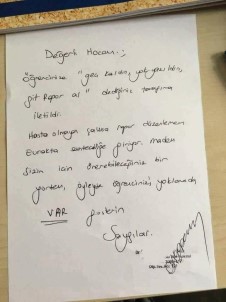 Değerli Hocam;
Öğrencinize "geç kaldın, yok yazıldın,
git Rapor al" dediğiniz tarafıma
iletildi.
Hasta olmayan şahsa rapor düzenlemem
Evrakta sahteciliğe giriyor. Madem
Sizin için önerebileceğiniz bir
yöntem, öyleyse öğrencinizi yoklamada
VAR gösterin
Saygılar.